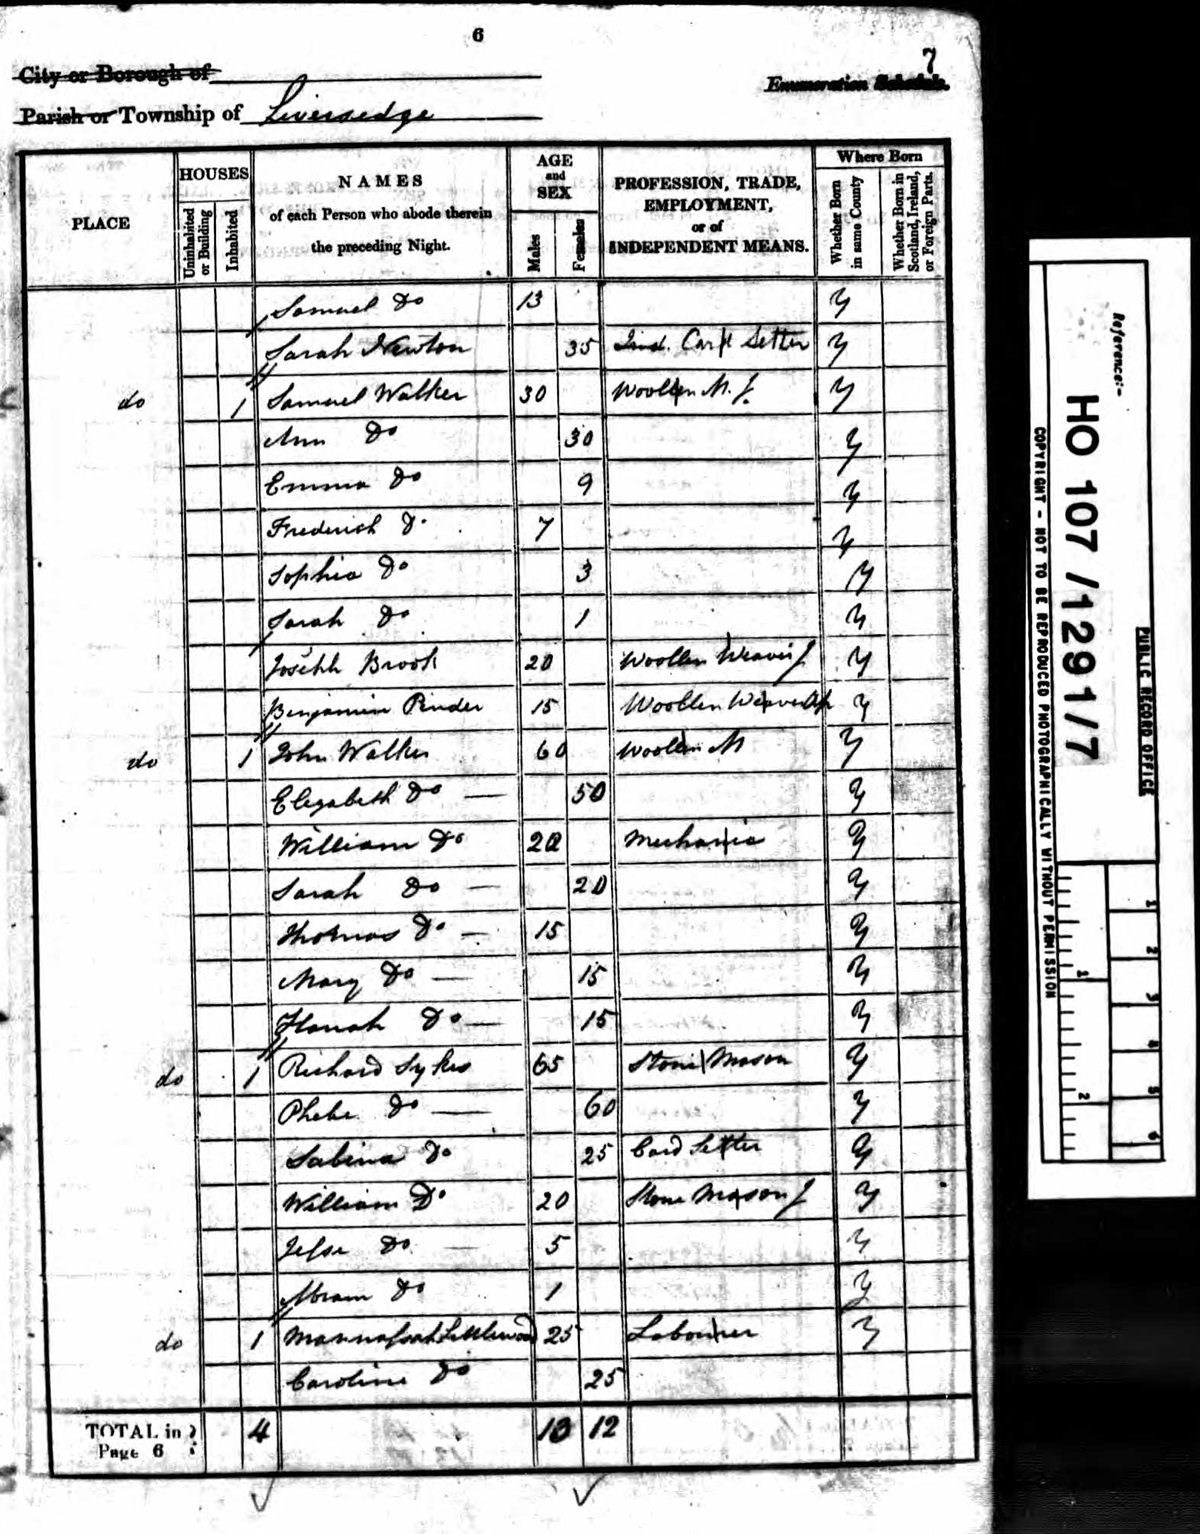 6
7
City or Borough of
Enumeration Schedule.
Parish or Township of Liversedge
PLACE
HOUSES
Uninhabited or Building
Inhabited
NAMES
of each Person who abode therein
the preceding Night.
AGE
and
SEX
Males
Females
PROFESSION, TRADE,
EMPLOYMENT,
or of
INDEPENDENT MEANS.
Where Born
Whether Born in same County
Whether Born in Scotland, Ireland, or Foreign Parts.
Samuel Do 13 Y
Sarah Newton 35 Ind. Card Setter Y
do 1 Samuel Walker 30 Woollen M. J. Y
Ann Do 30 Y
Emma Do 9 Y
Frederick Do 7 Y
Sophia Do 3 Y
Sarah Do 1 Y
Joseph Brook 20 Woollen Weaver J Y
Benjamin Pinder 15 Woollen Weaver Ap Y
do 1 John Walker 60 Woollen M Y
Elizabeth Do 50 Y
William Do 20 Mechanic Y
Sarah Do 20 Y
Thomas Do 15 Y
Mary Do 15 Y
Hanah Do 15 Y
do 1 Richard Sykes 65 Stone Mason Y
Phebe Do 60 Y
Sabina Do 25 Card Setter Y
William Do 20 Stone Mason J Y
Jesse Do 5 Y
Abram Do 1 Y
do 1 Mannassah Littlewood 25 Labourer Y
Caroline Do 25
TOTAL in Page 6 4 13 12
Reference:-
HO 107/1291/7
PUBLIC RECORD OFFICE
COPYRIGHT - NOT TO BE REPRODUCED PHOTOGRAPHICALLY WITHOUT PERMISSION
1
2
3
4
5
6
1
2